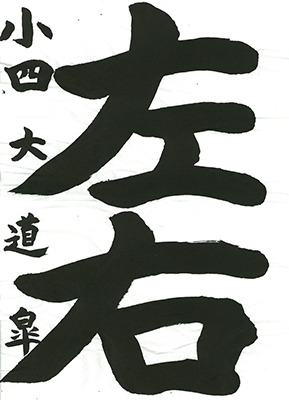 左右
小四 大道皐